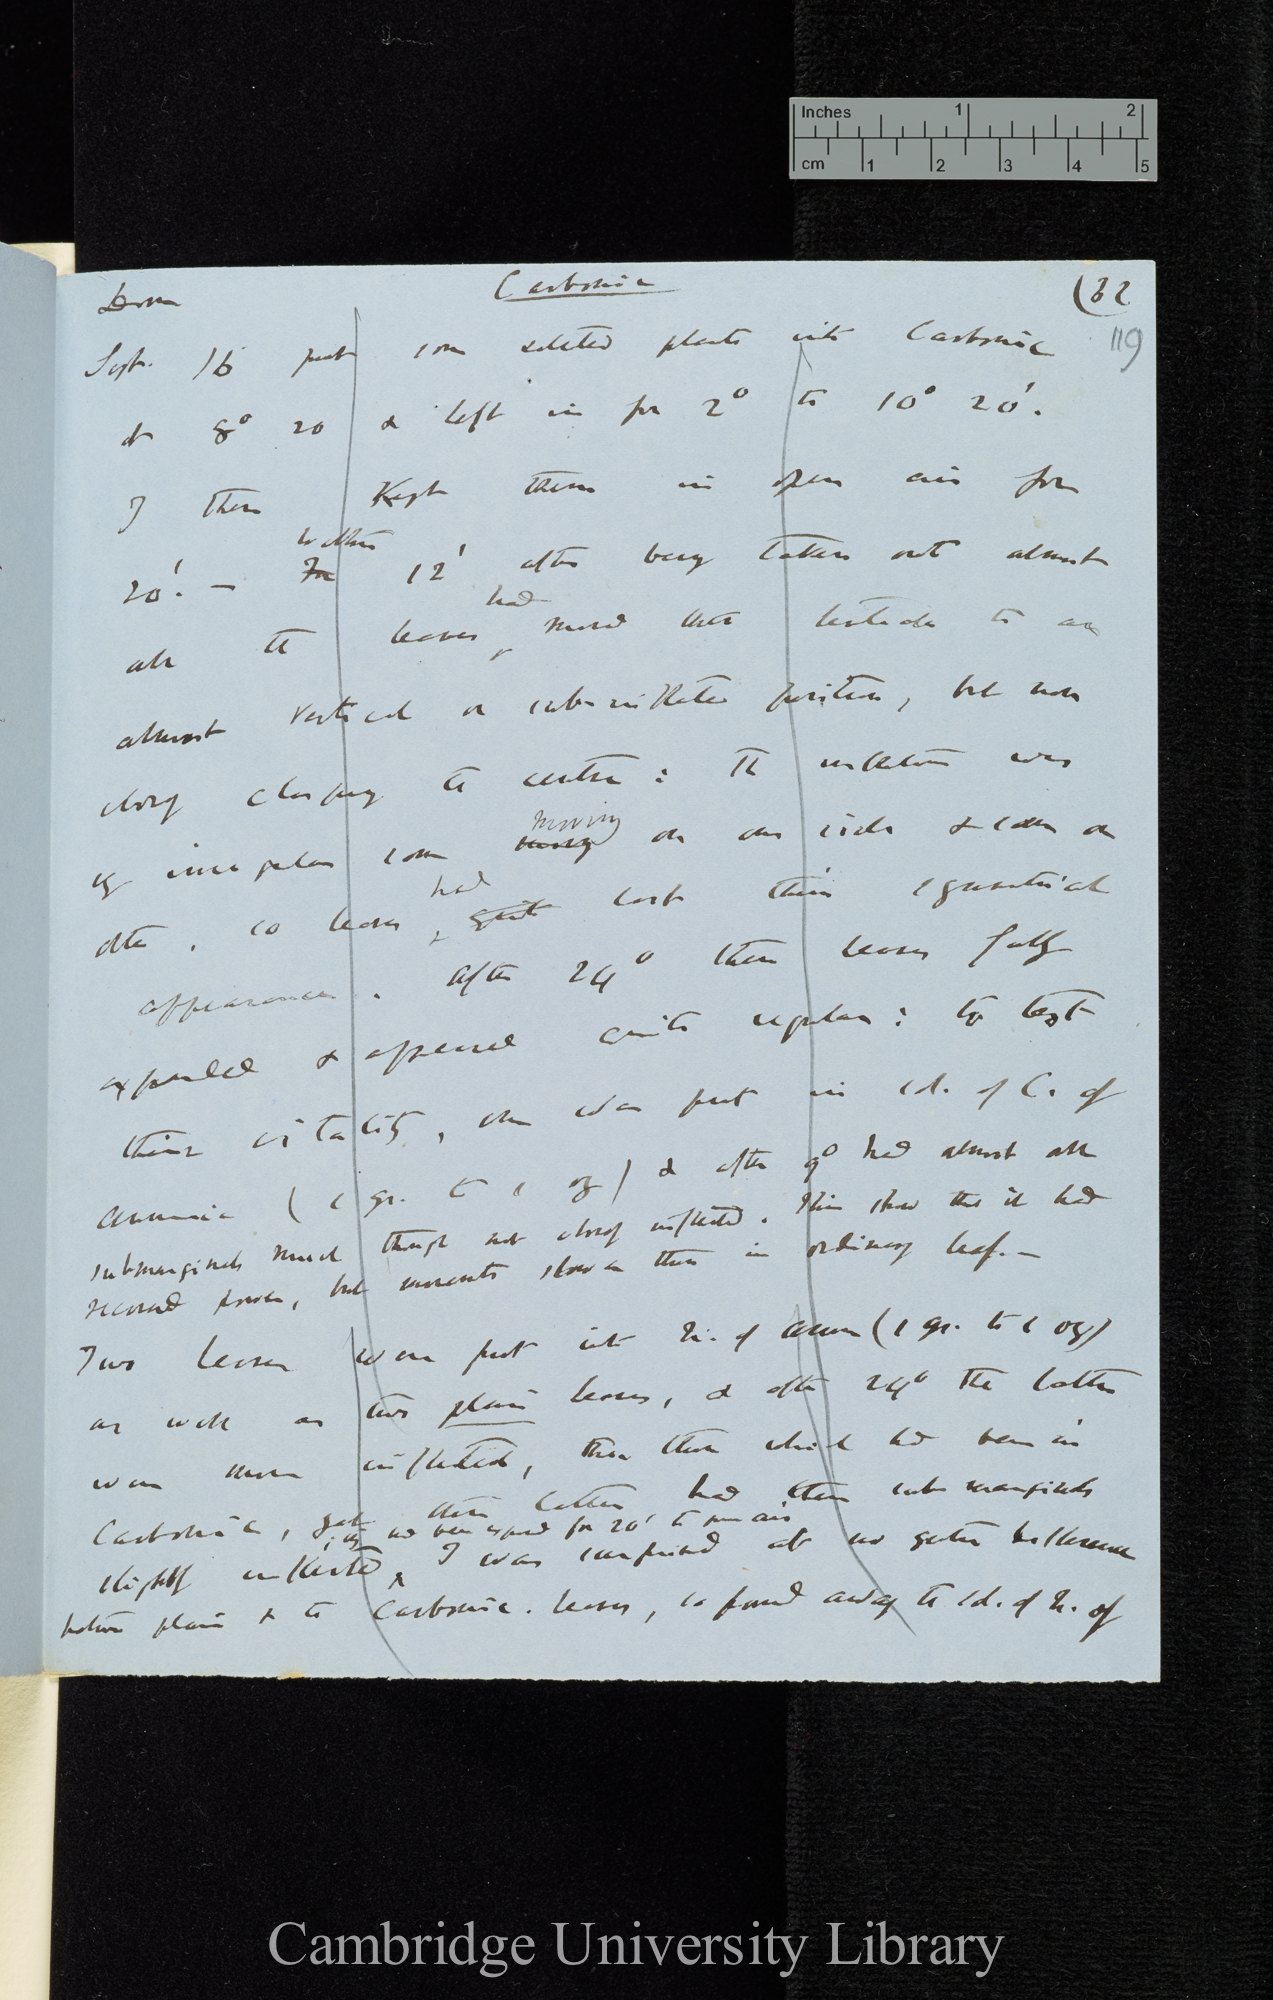 Inches 1 2
cm 1 2 3 4 5
Carbonic
(32
119
Sept. 16 put some selected plants into Carbonic
at 8° 20 & left in for 2° to 10° 20'.
I then Kept them in open air for
within
20'. — For 12' after being taken out almost
had
all the leaves, moved their tentacles to an
almost vertical or sub-inflected position, but none
closely clasping to centre: The inflection was
moving
irregular some on one side & some on
had
other, so leaves quite lost their symmetrical
appearance. After 24° these leaves fully
expanded & appeared quite regular: to test
their vitality, one was put in sol. of C. of
ammonia (1 gr. to 1 oz) & after 9° had almost all
submarginals much though not closely inflected. This shows that it had
recovered power, but movements slower than in ordinary leaf. —
Two leaves were put into N. of Amm (1 gr. to 1 oz)
as well as two plain leaves, & after 24° the latter
were more inflected, than those which had been in
Carbonic, yet these latter had their sub marginals
had been exposed for 20' to pure air
slightly inflected, I was surprised at no greater difference
between plain & the Carbonic. leaves, so found away the sol. of N. of
Cambridge University Library